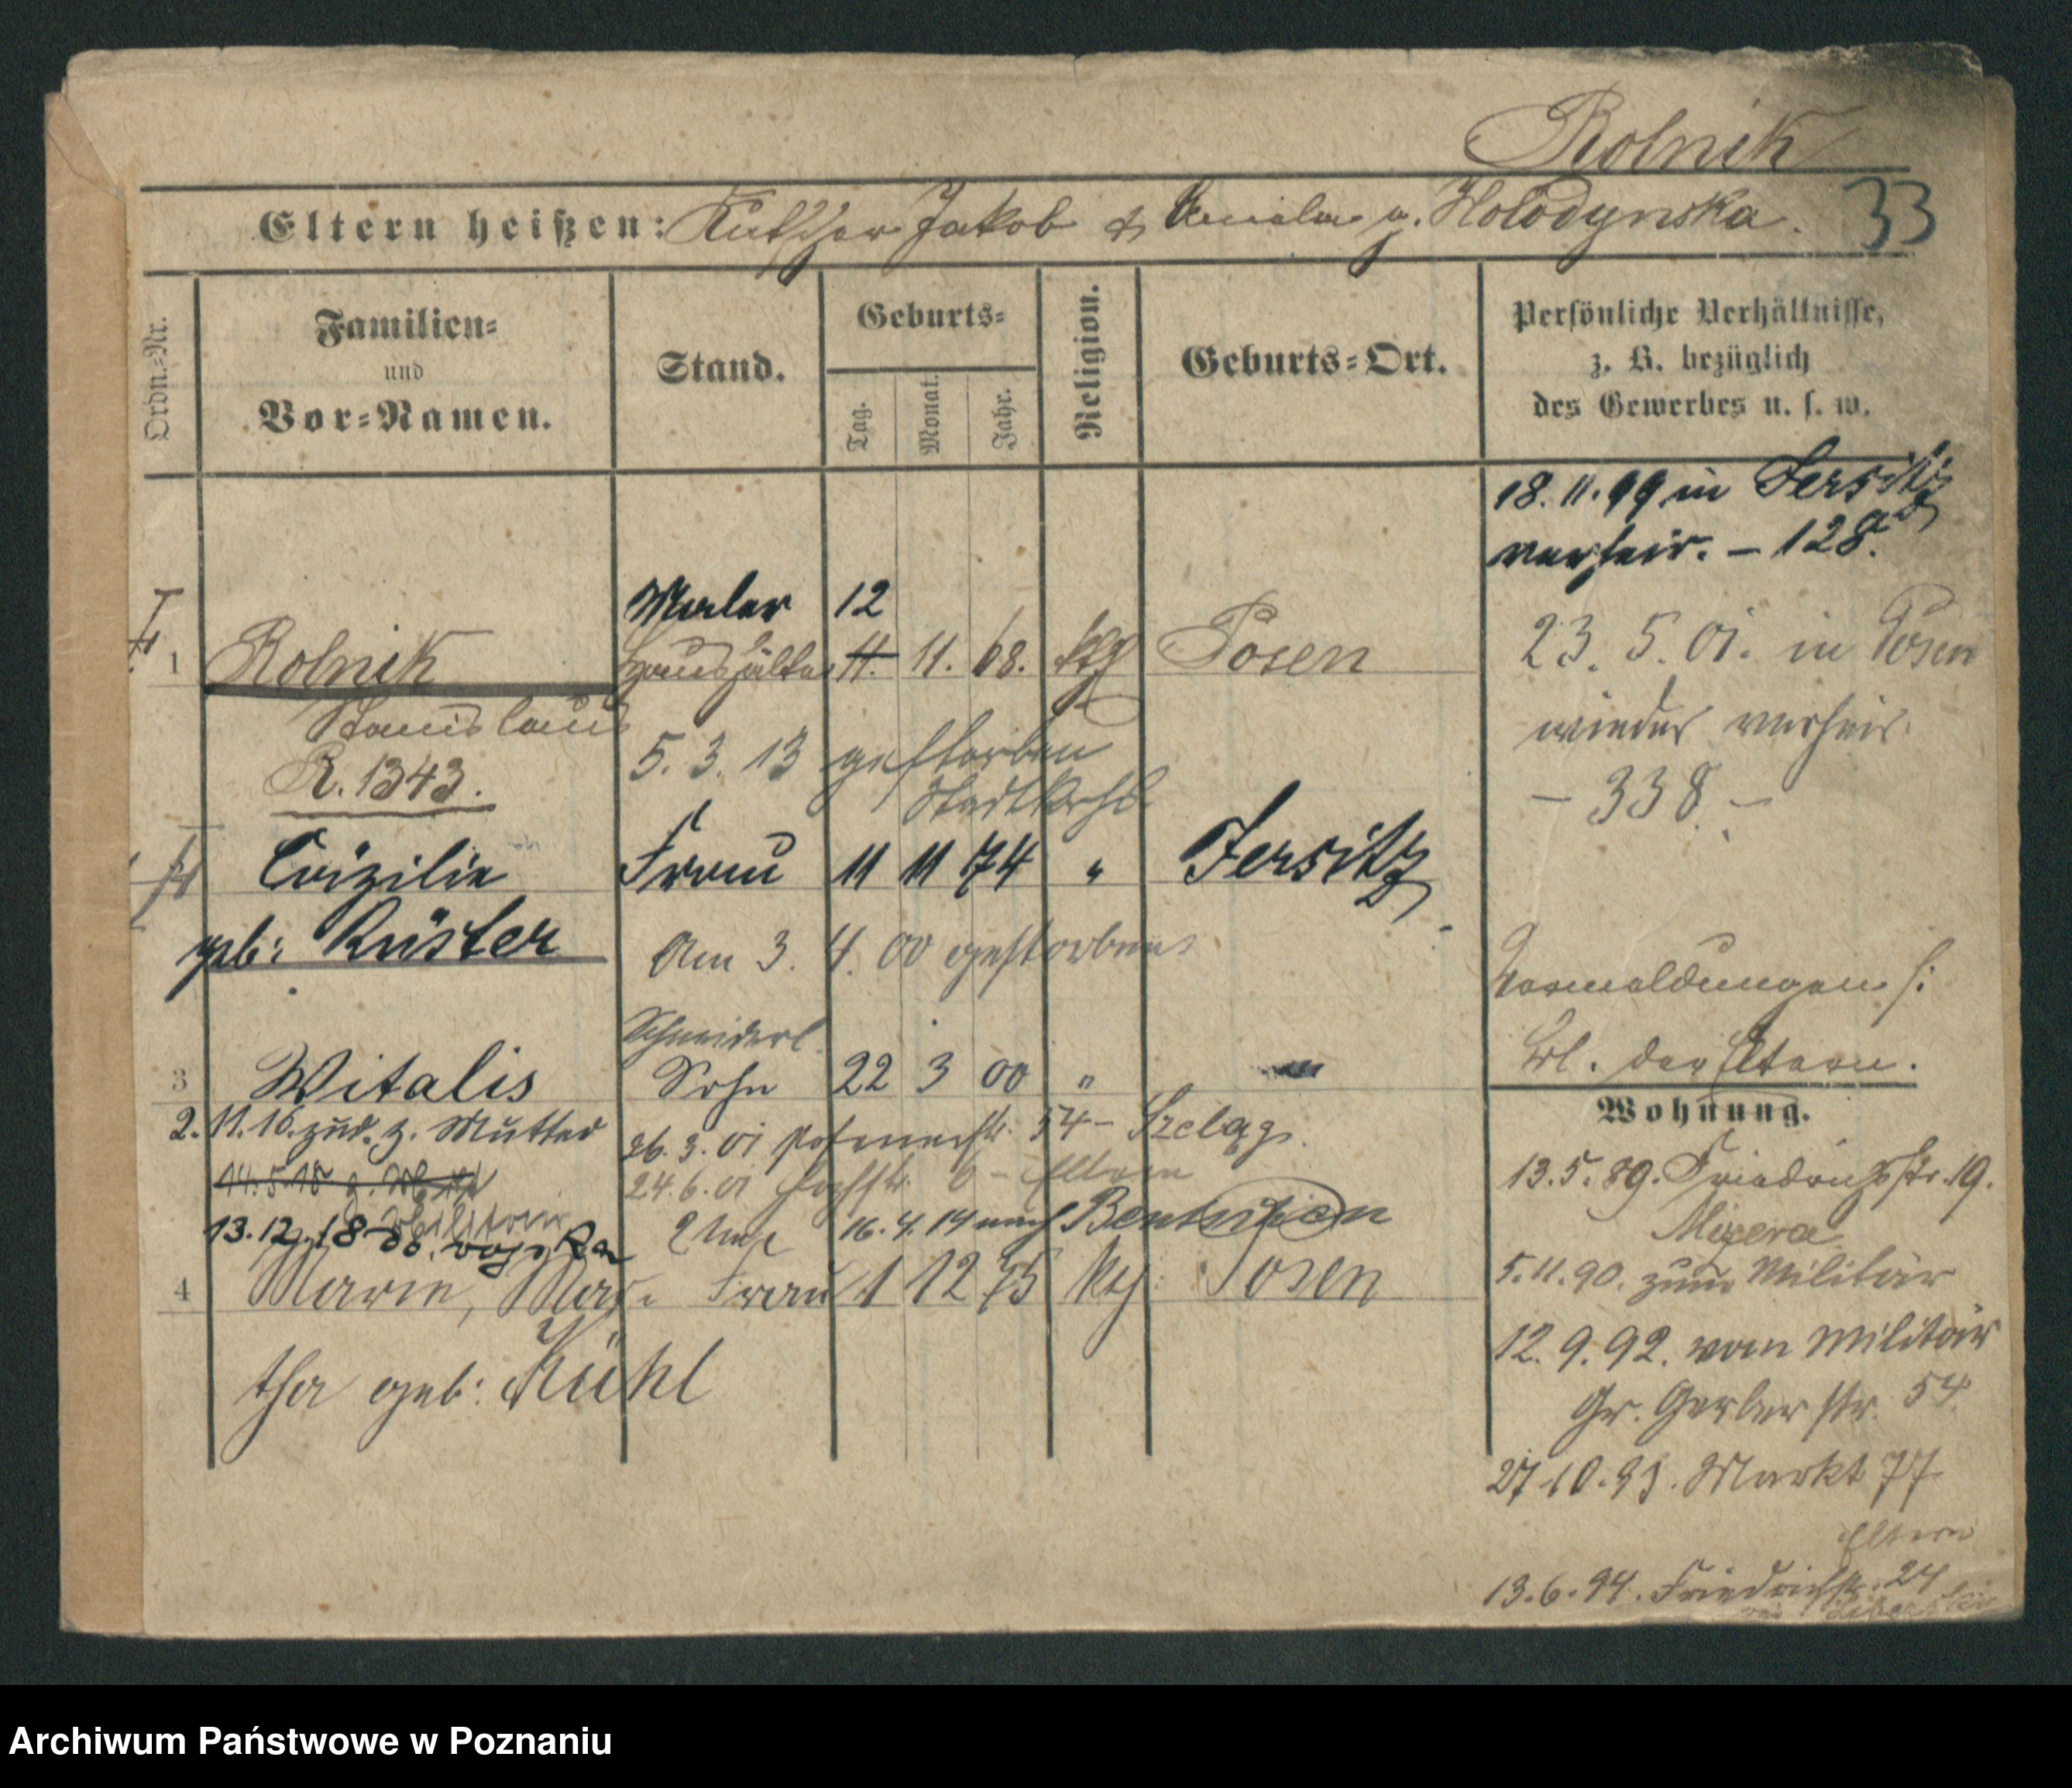 Rolnik
Eltern heißen: Kutscher Jakob & Amalia g. Holodynska. 33
Ordn.-Nr.
Familien- und Vor-Namen.
Stand.
Geburts-
Tag. Monat. Jahr.
Religion.
Geburts-Ort.
Persönliche Verhältnisse,
z. B. bezüglich
des Gewerbes u. s. w.
18. 11. 99 in Jersitz
verheir. – 128.
Maler 12
1 Rolnik Haushälter 11. 11. 68. ktg Posen
23. 5. 01. in Posen
Stanislaus
wieder verheir.
R. 1343.
5. 3. 13 gestorben
Stadtkrhs
– 338 –
Cäzilie Frau 11 11 74 " Jersitz
geb: Rüster
Am 3. 4. 00 gestorben
Vormeldungen s:
Bl. der Eltern.
Schneiderl.
3 Witalis Sohn 22 3 00 "
2. 11. 16. zur. z. Mutter
26. 3. 01 54 – Szeląg.
24. 6. 01 6 – Eltern
14. 5. 18
Militair
13. 12. 18
16. 4. 14 nach Bentschen
4 Marie, Mar- Frau 1 12 75 ktg. Posen
tha geb: Kühl
Wohnung.
13. 5. 89. Friedrichstr. 19.
Mizera
5. 11. 90. zum Militär
12. 9. 92. vom Militär
Gr. Gerberstr. 54
27 10. 93. Markt 77
Eltern
13. 6. 94. Friedrichstr. 24
Archiwum Państwowe w Poznaniu